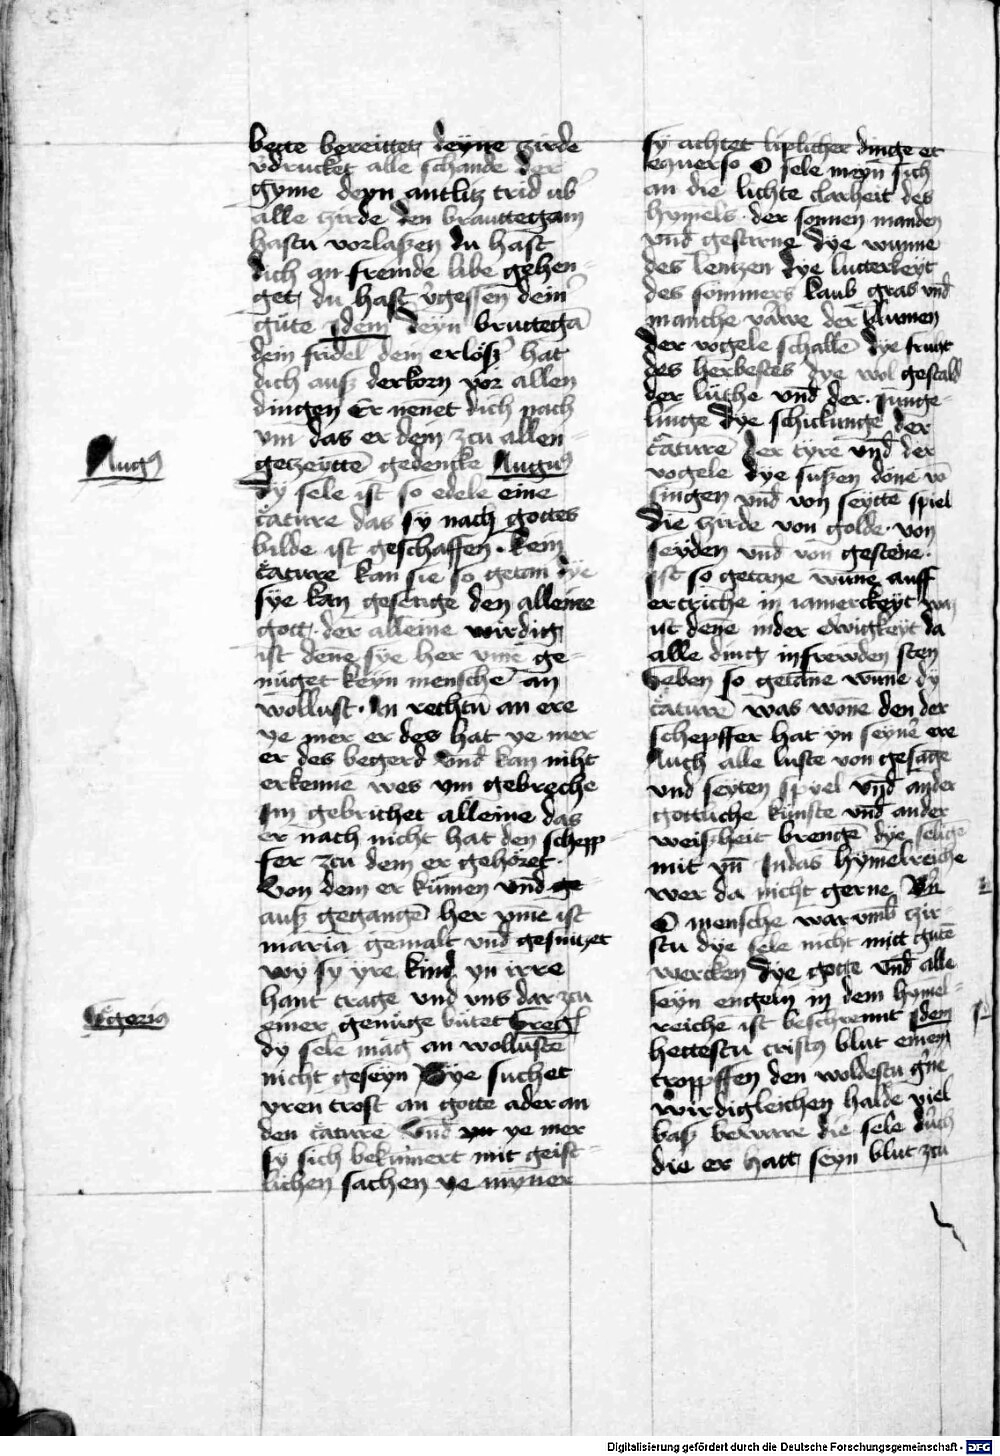 bette bereittet deyne zirde
v̓drucket alle schande der
gyme deyn antlitz trid ub̓
alle zirde den brauttegam
hastu vorlaszen du hast
dich an fremde libe gehen-
get du hast v̓gessen dein̓
gute Jdem deyn bruttegā
dem fridel dem erlösz̓ hat
dich ausz derkorn vor allen
dingen Er nēnet dich nach
vm̄ das er dem zcu allen-
getzeyttē gedencke Augus
Augꝯ
Dy sele ist so edele eine
c̓ature das sy nach gottes
bilde ist geschaffen. kein
c̓ature kan sie so getan dye
sye kan gesetige den alleine
gott. der alleine wirdig
ist denē sye her vmē ge-
nuget keyn menschē an
wollust. An rechtū an ere
ye mer er des hat ye mer
er des begerd vnd kan niht
erkenne wes ym gebreche
Jm gebrichet alleine das
er nach nicht hat den schepp
fer zcu dem er gehöret.
Von dem er kumen vnd ge-
ausz gegangē her vme ist
maria gemalt vnd gesnitzet
wy sy yre kind yn irre
hant trage vnd vns dar zcu
einer genuge butet Greg
Gregoriꝯ
dy sele mag an wollustē
nicht geseyn Sye suchet
yren trost an gotte ader an
den c̓ature Vnd ye mer
sy sich bekūmert mit geist-
lichen sachen ye mynner
sy achtet liplicher dinge et
equerso O sele meyn sich
an die lichte clarheit des
hymels. der sonnen manden
vnd gestirne dye wunne
des lentzen dye lutterkeyt
des sommers laub gras vnd
manche varwe der blumen
der vogele schallē dye frucht
des herbestes dye wol gestald
der luthe vnd der. Junge-
linge dye schickunge der
c̓aturē der tyre vnd der
vogele dye suszen done vō
singen vnd von seyttē spiel
die zirde von golde. von
seyden vnd von gesteine.
ist so getane wūne auff
ertriche in iamerckeyt waz
ist denē inder ewigkeyt da
alle ding infrewden sten
Geben so getane wune dy
c̓aturē was wōne den der
schepffer hat yn seyn̓ ere
Auch alle luste von gesāge
vnd seyten spyel vnd ander
gottliche kunste vnd ander
weiszheit brengē dye seligē
mit yn̄ Jndas hymelreiche
wer da nicht gerne
O mensche war vmb zir-
stu dye sele nicht mitt gutē
wercken dye gotte vnd alle
seyn engeln in dem hymel-
reichē ist beschrennt Jdem
hettestu cristꝯ blut einem
troppffen den woldestu g̓ne
wirdigleichen halde viel
basz beware die sele durch
die er hatt seyn blut zcu